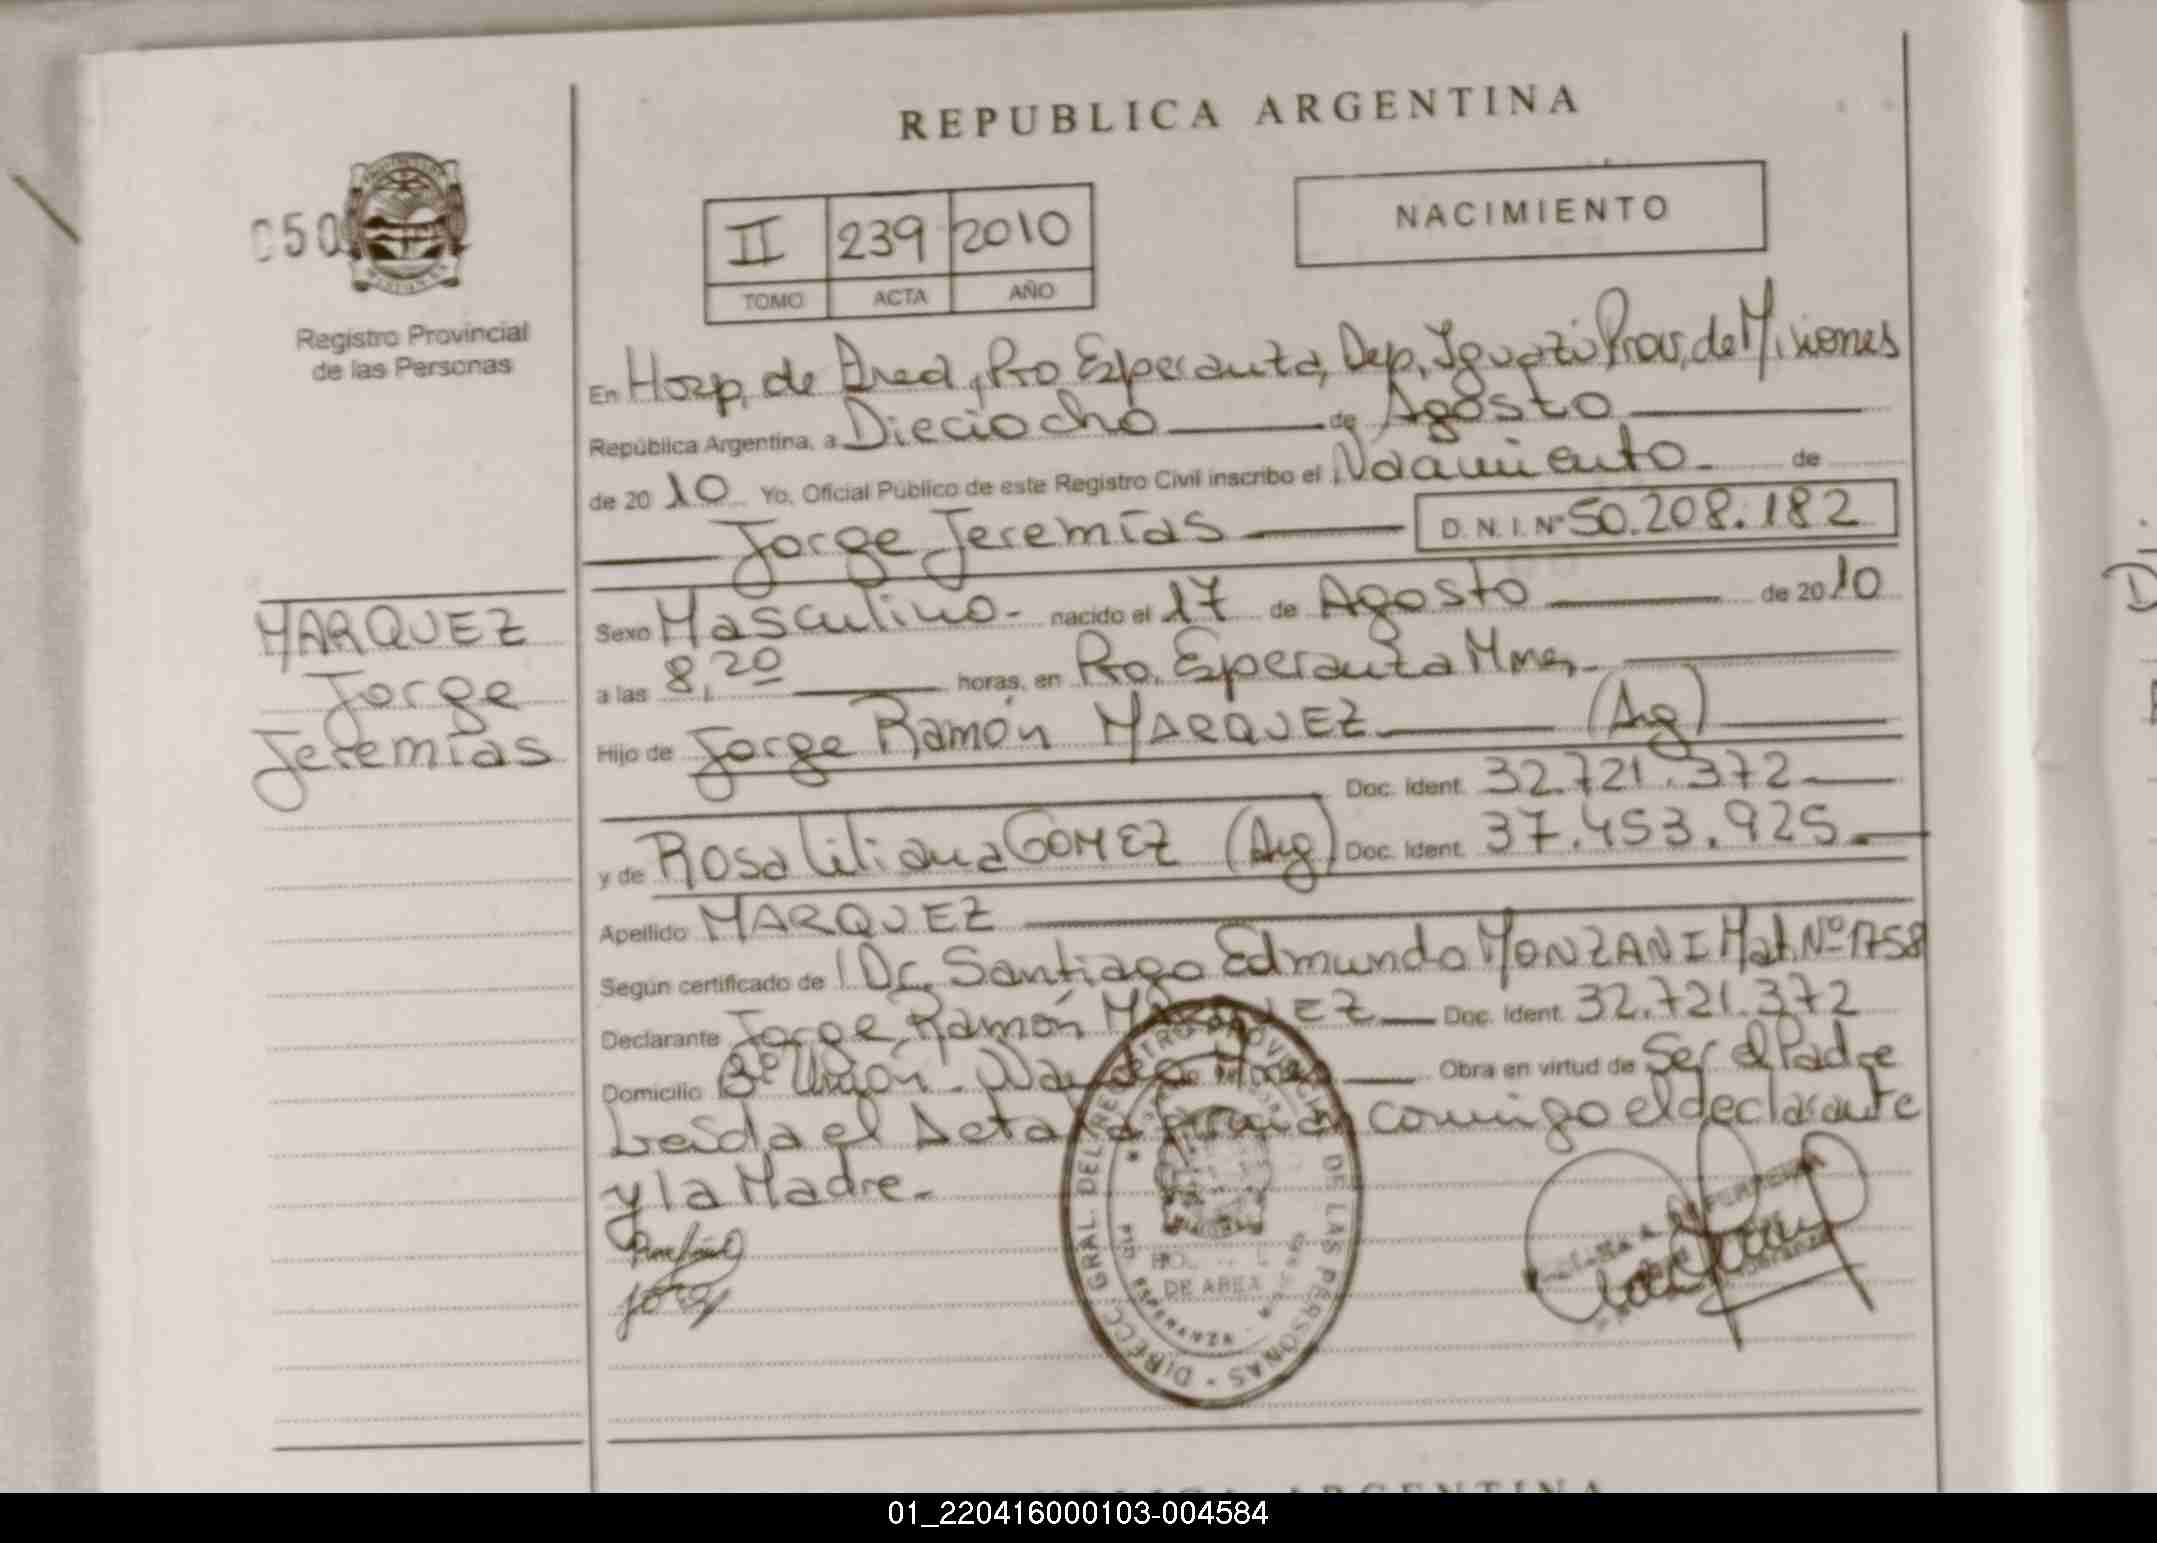 REPUBLICA ARGENTINA
050
II 239 2010
TOMO ACTA AÑO
NACIMIENTO
Registro Provincial
de las Personas
En Hosp. de Area, Pto Esperanza, Dep. Iguazú Prov. de Misiones
República Argentina, a Dieciocho de Agosto
de 2010 Yo, Oficial Público de este Registro Civil inscribo el Nacimiento de
Jorge Jeremías D. N. I. Nº 50.208.182
MARQUEZ
Jorge
Jeremías
Sexo Masculino - nacido el 17 de Agosto de 2010
a las 8,20 horas, en Pto. Esperanza Mnes.
Hijo de Jorge Ramón MARQUEZ (Arg)
Doc. Ident. 32.721.372
y de Rosa Liliana GOMEZ (Arg) Doc. Ident. 37.453.925.
Apellido MARQUEZ
Según certificado de Dr. Santiago Edmundo MONZANI Mat. Nº 1758
Declarante Jorge Ramón MARQUEZ Doc. Ident. 32.721.372
Domicilio Bº Unión - Mnes Obra en virtud de Ser el Padre
Leída el Acta la firman conmigo el declarante
y la Madre.
DIRECC. GRAL. DEL REGISTRO PROVINCIAL DE LAS PERSONAS
DE AREA
ESPERANZA
REPUBLICA ARGENTINA
01_220416000103-004584